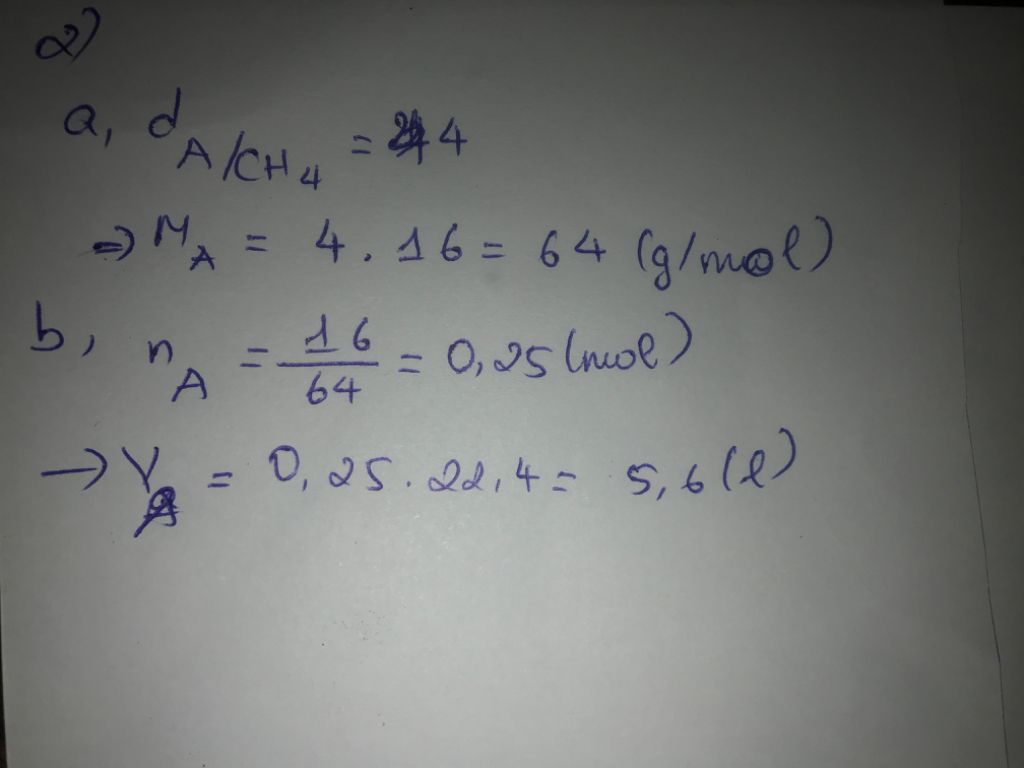 2)
a, d A/CH4 = 4
=> MA = 4 . 16 = 64 (g/mol)
b, nA = 16/64 = 0,25 (mol)
→ VA = 0,25 . 22,4 = 5,6 (l)